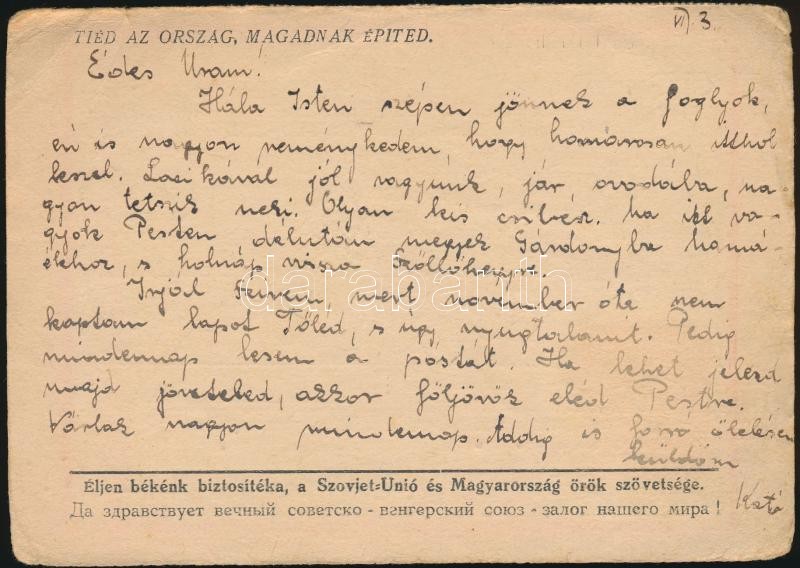 VI 3.
TIÉD AZ ORSZÁG, MAGADNAK ÉPITED.
Édes Uram!
Hála Isten szépen jönnek a foglyok,
én is nagyon reménykedem, hogy hamarosan itthol
leszel. Lacikával jól vagyunk, jár óvodába, na-
gyon tetszik neki. Olyan kis csibész. ha itt va-
gyok Pesten délután megyek Gárdonyba hamá-
ékhoz, s holnap vissza Szőllőhegyre.
Irjál Szivem, mert november óta nem
kaptam lapot Tőled, s úgy nyugtalanit. Pedig
mindennap lesem a póstát. Ha lehet jelezd
majd jöveteled, akkor följövök eléd Pestre.
Várlak nagyon mindennap. Addig is forró ölelésem
küldöm
Kató
Éljen békénk biztosítéka, a Szovjet-Unió és Magyarország örök szövetsége.
Да здравствует вечный советско - венгерский союз - залог нашего мира !
darabanth